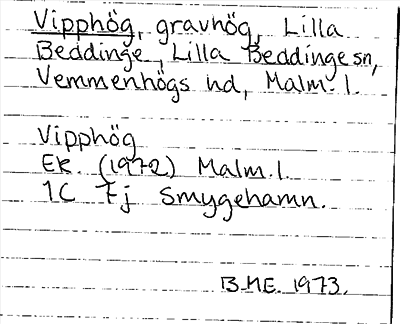 Vipphög, gravhög, Lilla
Beddinge, Lilla Beddinge sn,
Vemmenhögs hd, Malm. l.
Vipphög
EK. (1972) Malm. l.
1C 7j Smygehamn.
B.ME. 1973.